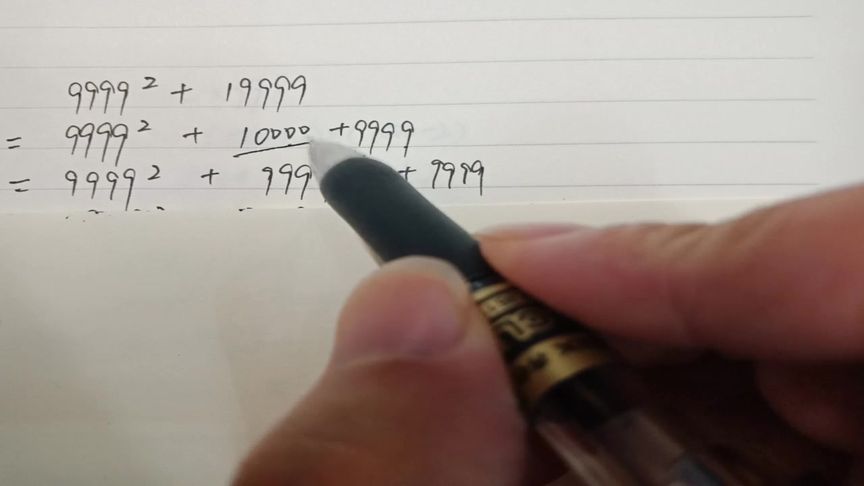 9999² + 19999
= 9999² + 10000 + 9999
= 9999² + 999 + 9999